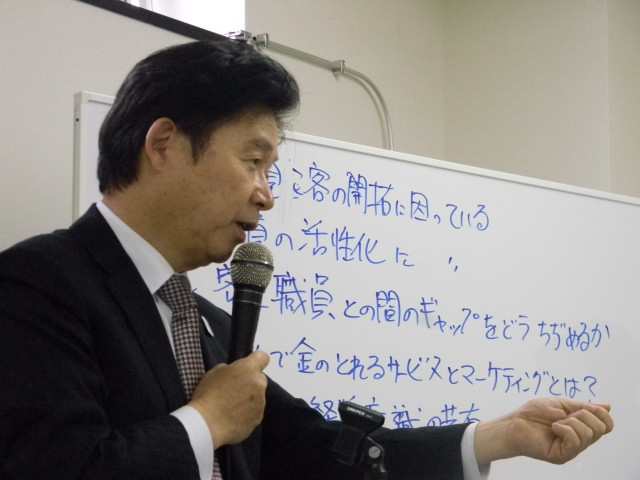 客の開拓に困っている
の活性化に 〃
職員との間のギャップをどうちぢめるか
で金のとれるサービスとマーケティングとは?
の共有